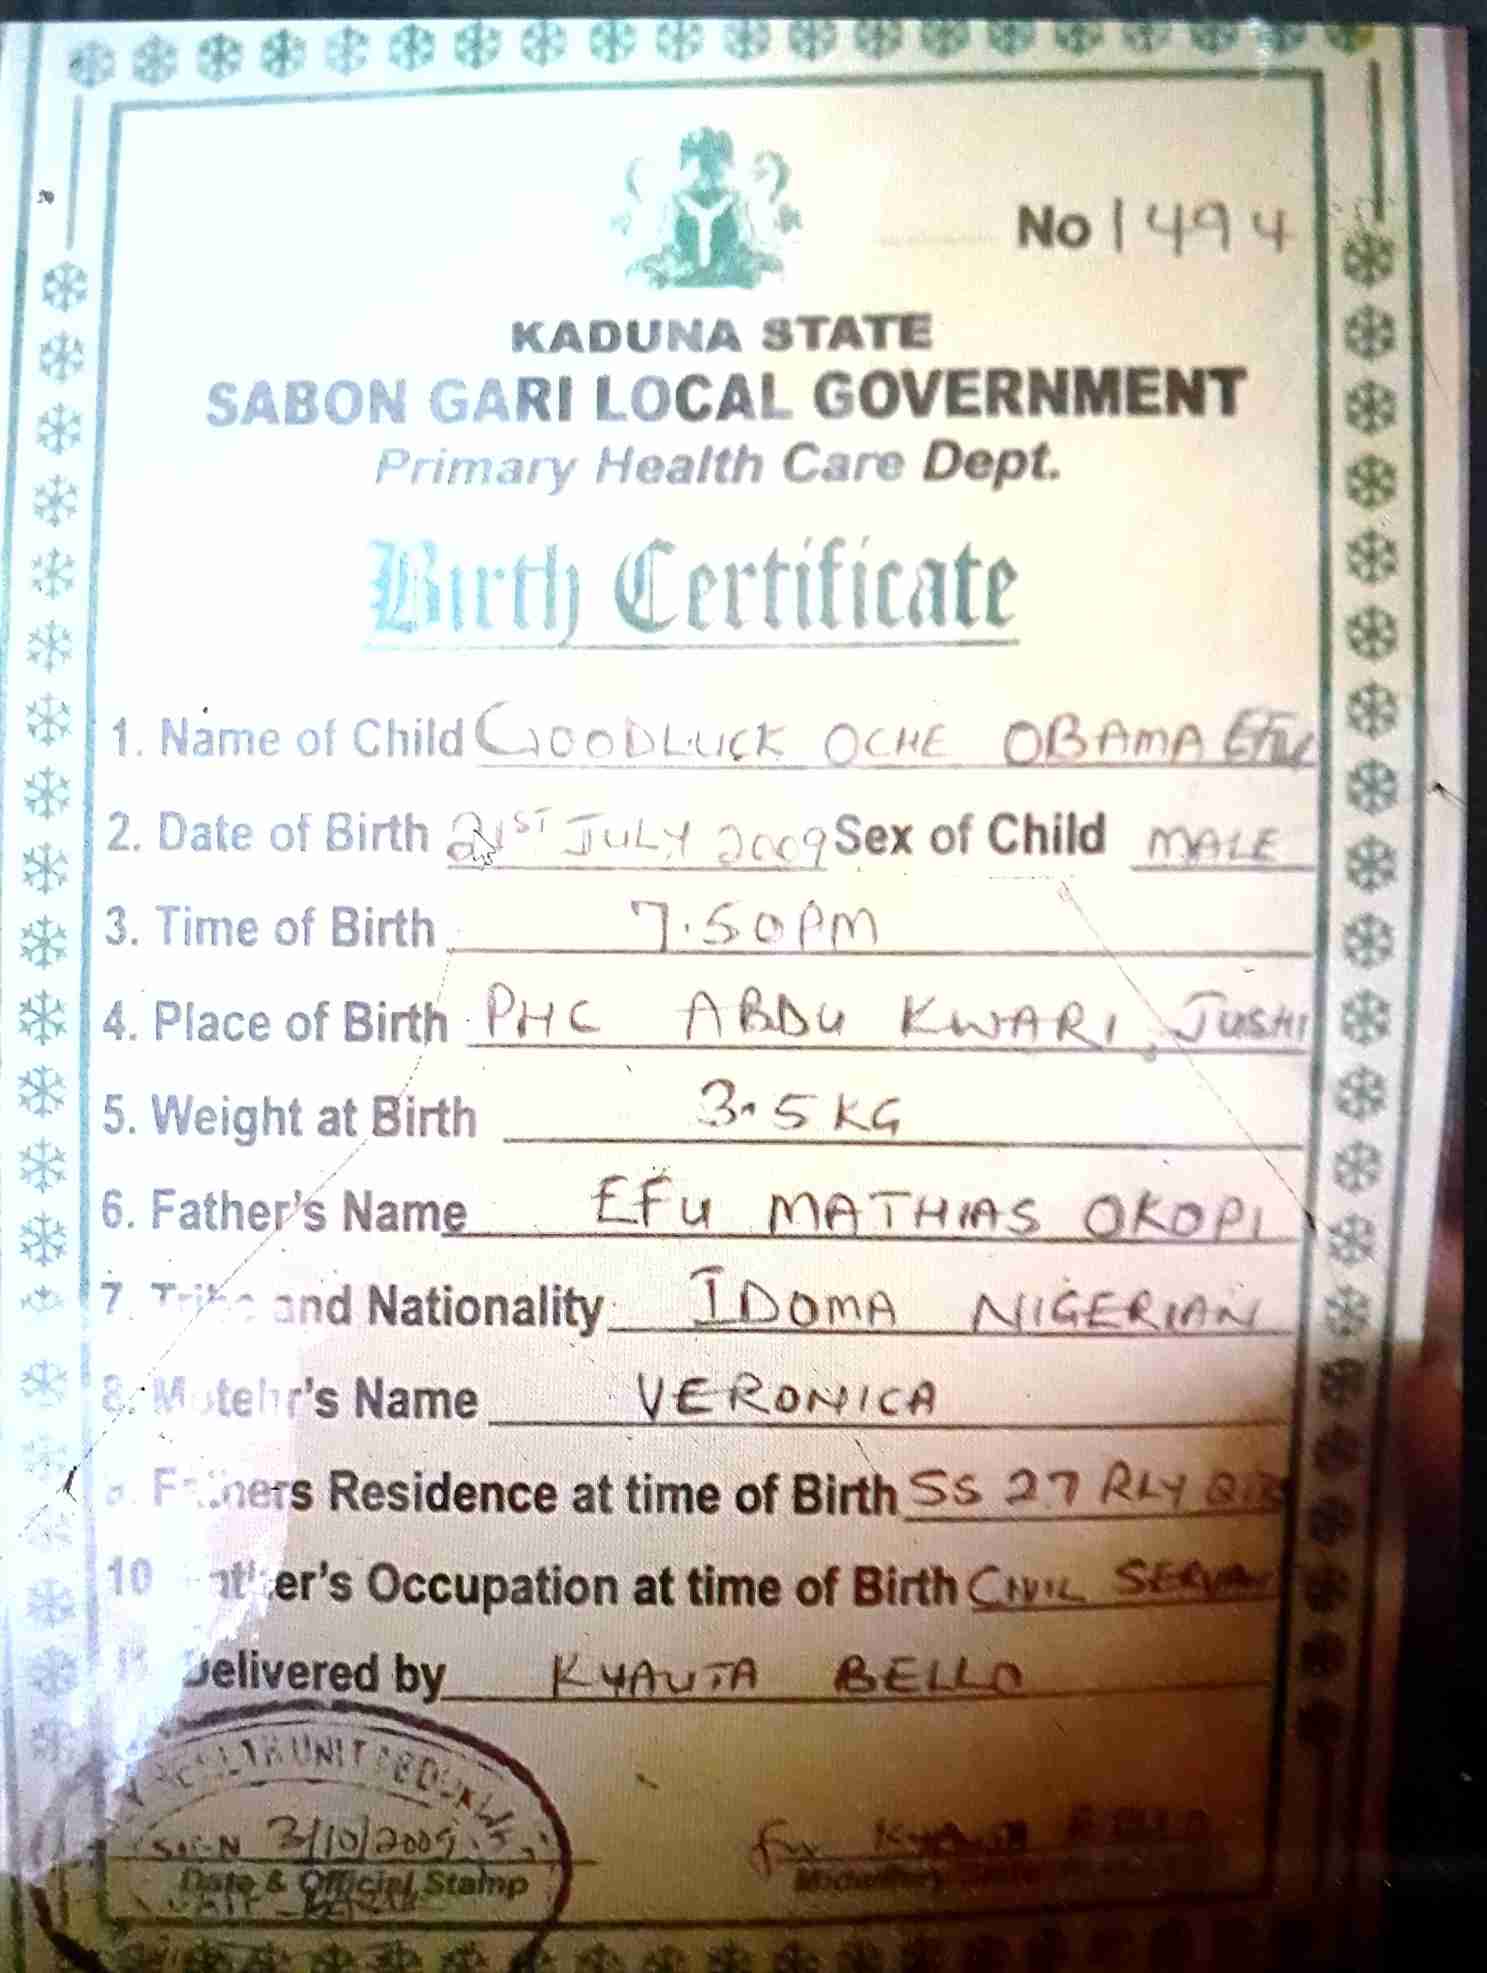 No 1494
KADUNA STATE
SABON GARI LOCAL GOVERNMENT
Primary Health Care Dept.
Birth Certificate
1. Name of Child GOODLUCK OCHE OBAMA EFU
2. Date of Birth 21ST JULY 2009 Sex of Child MALE
3. Time of Birth 7.50PM
4. Place of Birth PHC ABDU KWARI, JUSHI
5. Weight at Birth 3.5KG
6. Father's Name EFU MATHIAS OKOPI
7. Tribe and Nationality IDOMA NIGERIAN
8. Motehr's Name VERONICA
Fathers Residence at time of Birth SS 27 RLY
10 Father's Occupation at time of Birth CIVIL
Delivered by KYAUTA BELLO
UNIT
SIGN 3/10/2009
Date & Official Stamp